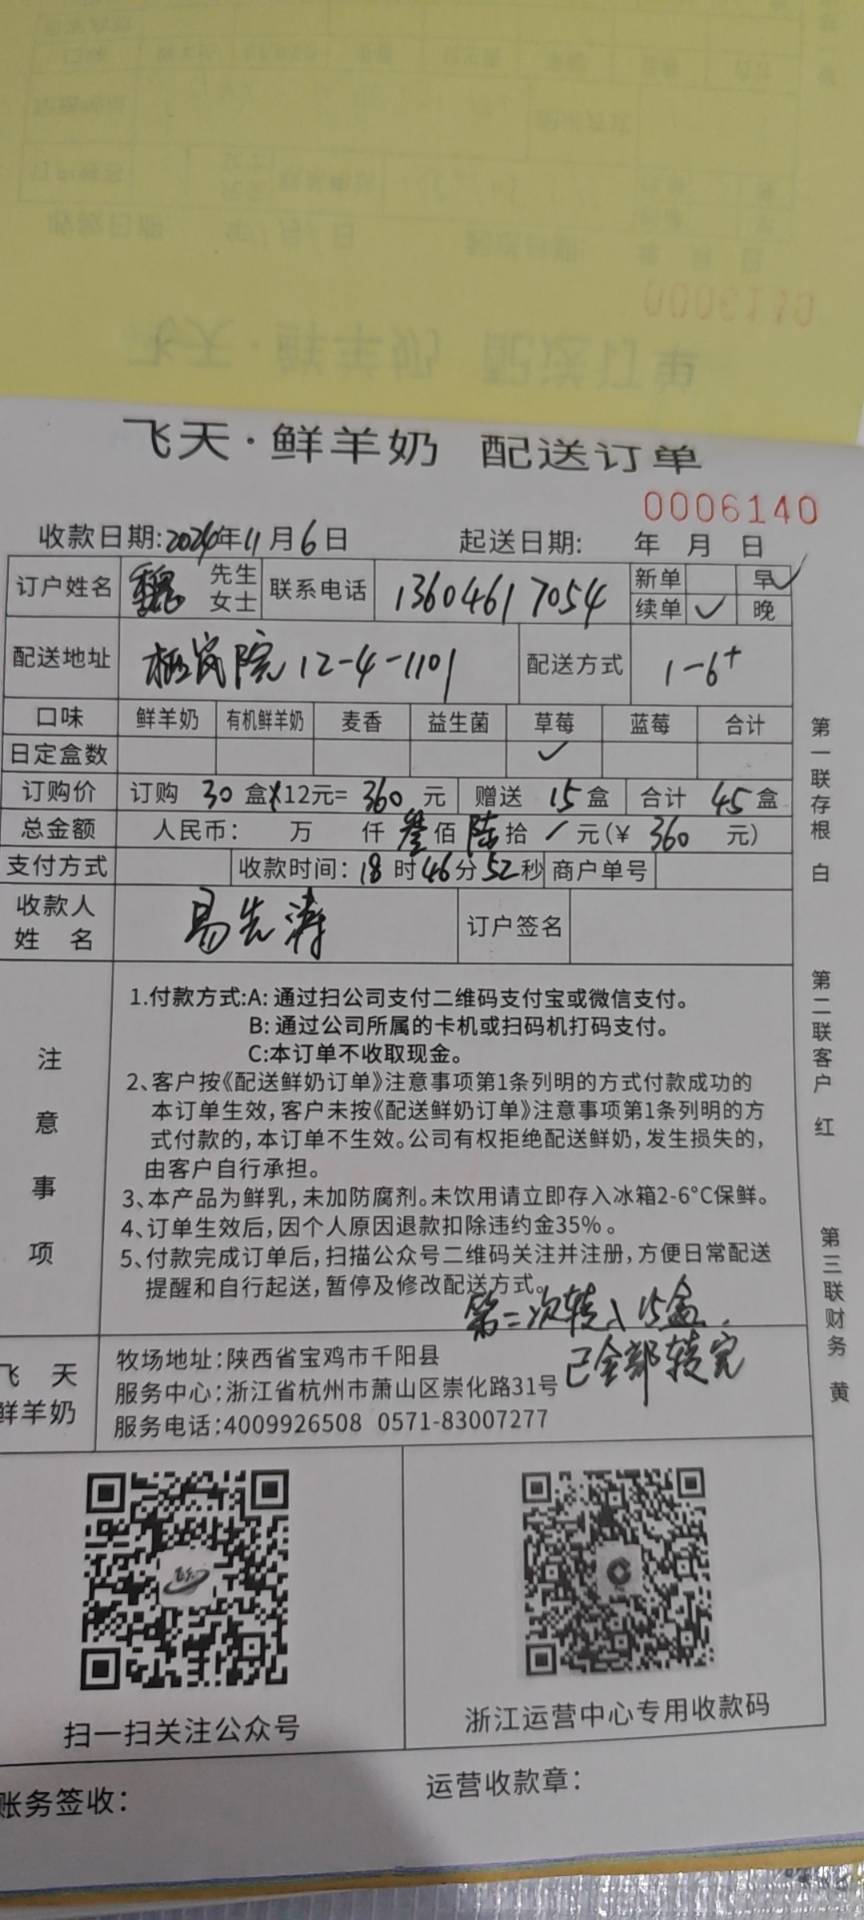 飞天·鲜羊奶 配送订单
0006140
收款日期:2024年11月6日 起送日期: 年 月 日
订户姓名 魏 先生 女士 联系电话 13604617054 新单 早✓
续单 ✓ 晚
配送地址 院12-4-1101 配送方式 1-6+
口味 鲜羊奶 有机鲜羊奶 麦香 益生菌 草莓 蓝莓 合计
日定盒数 ✓
订购价 订购 30 盒×12元= 360 元 赠送 15 盒 合计 45 盒
总金额 人民币: 万 仟 叁佰 陆拾 / 元(¥ 360 元)
支付方式 收款时间: 18时46分52秒 商户单号
收款人姓名 易先涛 订户签名
注意事项
1.付款方式:A: 通过扫公司支付二维码支付宝或微信支付。
B: 通过公司所属的卡机或扫码机打码支付。
C:本订单不收取现金。
2、客户按《配送鲜奶订单》注意事项第1条列明的方式付款成功的
本订单生效,客户未按《配送鲜奶订单》注意事项第1条列明的方
式付款的,本订单不生效。公司有权拒绝配送鲜奶,发生损失的,
由客户自行承担。
3、本产品为鲜乳,未加防腐剂。未饮用请立即存入冰箱2-6°C保鲜。
4、订单生效后,因个人原因退款扣除违约金35%。
5、付款完成订单后,扫描公众号二维码关注并注册,方便日常配送
提醒和自行起送,暂停及修改配送方式。
第二次转入15盒.
已全部转完
飞天
鲜羊奶
牧场地址:陕西省宝鸡市千阳县
服务中心:浙江省杭州市萧山区崇化路31号
服务电话:4009926508 0571-83007277
扫一扫关注公众号
浙江运营中心专用收款码
账务签收:
运营收款章:
第一联存根 白
第二联客户 红
第三联财务 黄